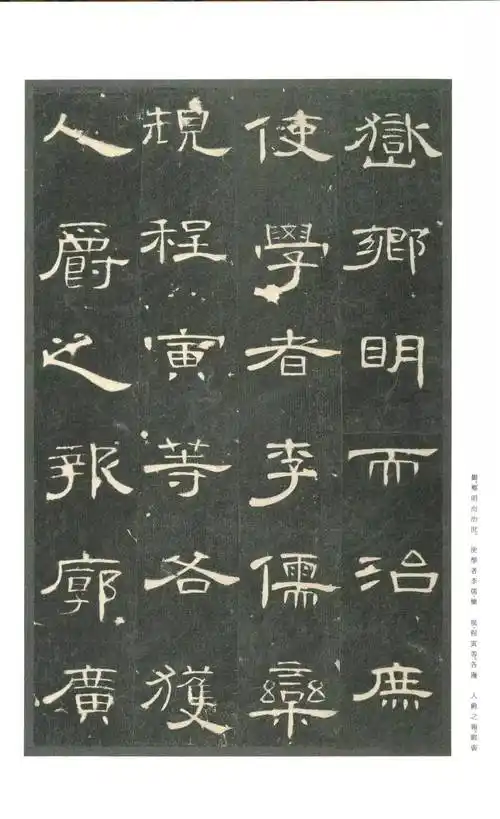 嶽鄉明而治庶
使學者李儒欒
規程寅等各獲
人爵之報廓廣
嶽，鄉明而治。庶 使學者李儒、欒 規、程寅等，各獲 人爵之報。廓廣